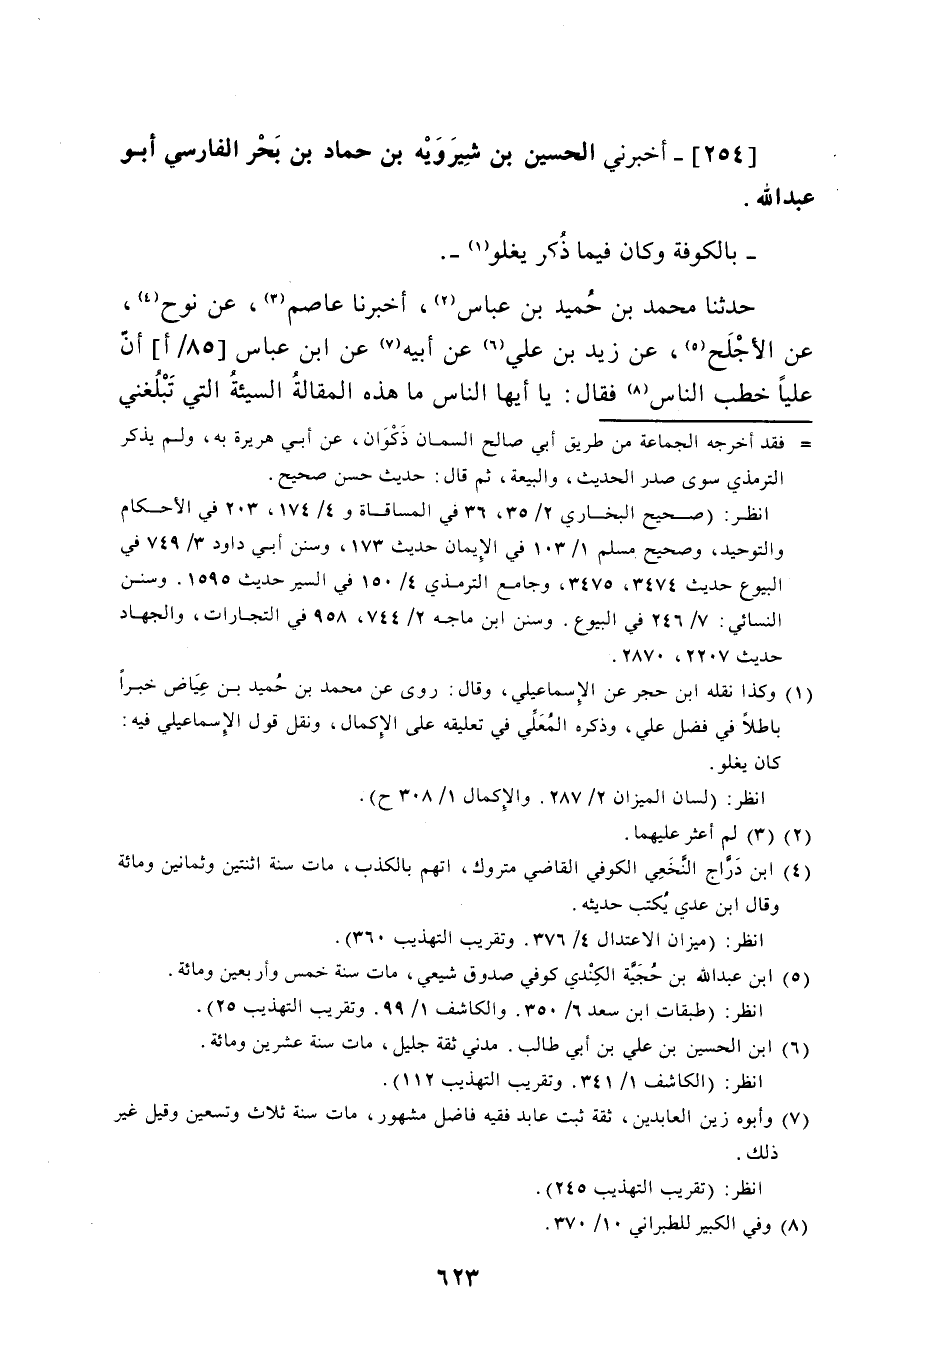 [٢٥٤] ـ أخبرني الحسين بن شِيرَوَيْه بن حماد بن بَحْر الفارسي أبـو
عبدالله .
ـ بالكوفة وكان فيما ذُكر يغلو(١) ـ.
حدثنا محمد بن حُميد بن عباس(٢)، أخبرنا عاصم(٣)، عن نوح(٤)،
عن الأجْلَح(٥)، عن زيد بن علي(٦) عن أبيه(٧) عن ابن عباس [٨٥/ أ] أنّ
علياً خطب الناس(٨) فقال: يا أيها الناس ما هذه المقالةُ السيئةُ التي تَبْلُغني
= فقد أخرجه الجماعة من طريق أبي صالح السمان ذَكْوَان، عن أبي هريرة به، ولم يذكر
الترمذي سوى صدر الحديث، والبيعة، ثم قال: حديث حسن صحيح.
انظر: (صحيح البخاري ٢/ ٣٥، ٣٦ في المساقاة و ٤/ ١٧٤، ٢٠٣ في الأحكام
والتوحيد، وصحيح مسلم ١/ ١٠٣ في الإيمان حديث ١٧٣، وسنن أبي داود ٣/ ٧٤٩ في
البيوع حديث ٣٤٧٤، ٣٤٧٥، وجامع الترمذي ٤/ ١٥٠ في السير حديث ١٥٩٥. وسنن
النسائي: ٧/ ٢٤٦ في البيوع. وسنن ابن ماجه ٢/ ٧٤٤، ٩٥٨ في التجارات، والجهاد
حديث ٢٢٠٧، ٢٨٧٠.
(١) وكذا نقله ابن حجر عن الإسماعيلي، وقال: روى عن محمد بن حُميد بن عِيَاض خبراً
باطلاً في فضل علي، وذكره المُعَلِّي في تعليقه على الإكمال، ونقل قول الإسماعيلي فيه:
كان يغلو.
انظر: (لسان الميزان ٢/ ٢٨٧. والإكمال ١/ ٣٠٨ ح).
(٢) (٣) لم أعثر عليهما.
(٤) ابن دَرَّاج النَّخَعِي الكوفي القاضي متروك، اتهم بالكذب، مات سنة اثنتين وثمانين ومائة
وقال ابن عدي يُكتب حديثه.
انظر: (ميزان الاعتدال ٤/ ٣٧٦. وتقريب التهذيب ٣٦٠).
(٥) ابن عبدالله بن حُجَيَّة الكِنْدي كوفي صدوق شيعي، مات سنة خمس وأربعين ومائة.
انظر: (طبقات ابن سعد ٦/ ٣٥٠. والكاشف ١/ ٩٩. وتقريب التهذيب ٢٥).
(٦) ابن الحسين بن علي بن أبي طالب. مدني ثقة جليل، مات سنة عشرين ومائة.
انظر: (الكاشف ١/ ٣٤١. وتقريب التهذيب ١١٢).
(٧) وأبوه زين العابدين، ثقة ثبت عابد فقيه فاضل مشهور، مات سنة ثلاث وتسعين وقيل غير
ذلك.
انظر: (تقريب التهذيب ٢٤٥).
(٨) وفي الكبير للطبراني ١٠/ ٣٧٠.
٦٢٣